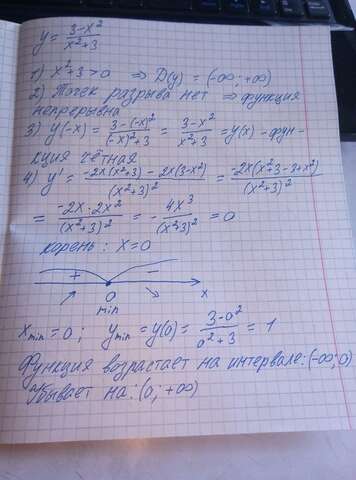 y = (3-x²)/(x²+3)
1) x²+3>0 ⇒ D(y) = (-∞; +∞)
2) Точек разрыва нет ⇒ функция
непрерывна
3) y(-x) = (3-(-x)²)/((-x)²+3) = (3-x²)/(x²+3) = y(x) - фун-
кция чётная
4) y' = (-2x(x²+3) - 2x(3-x²))/(x²+3)² = (-2x(x²+3-3+x²))/(x²+3)²
= (-2x·2x²)/(x²+3)² = - 4x³/(x²+3)² = 0
корень: x=0
+ -
0 x
min
x min = 0; y min = y(0) = (3-0²)/(0²+3) = 1
Функция возрастает на интервале: (-∞; 0)
Убывает на: (0; +∞)